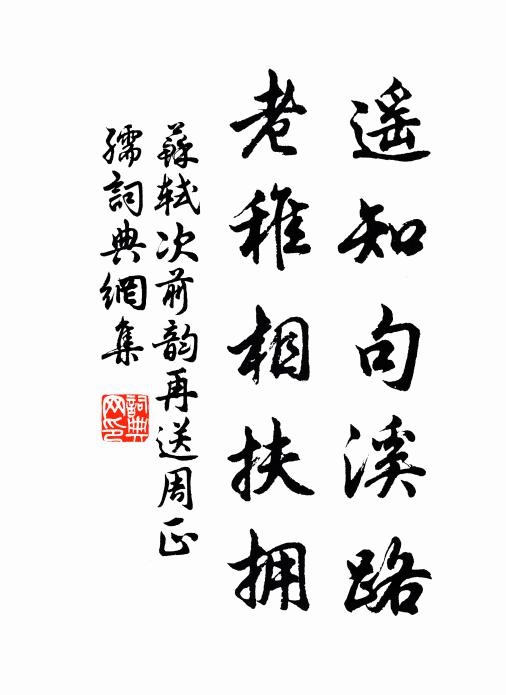 遥知句溪路
老稚相扶拥
蘇軾次前韵再送周正
孺詞典網集
詞典
网印